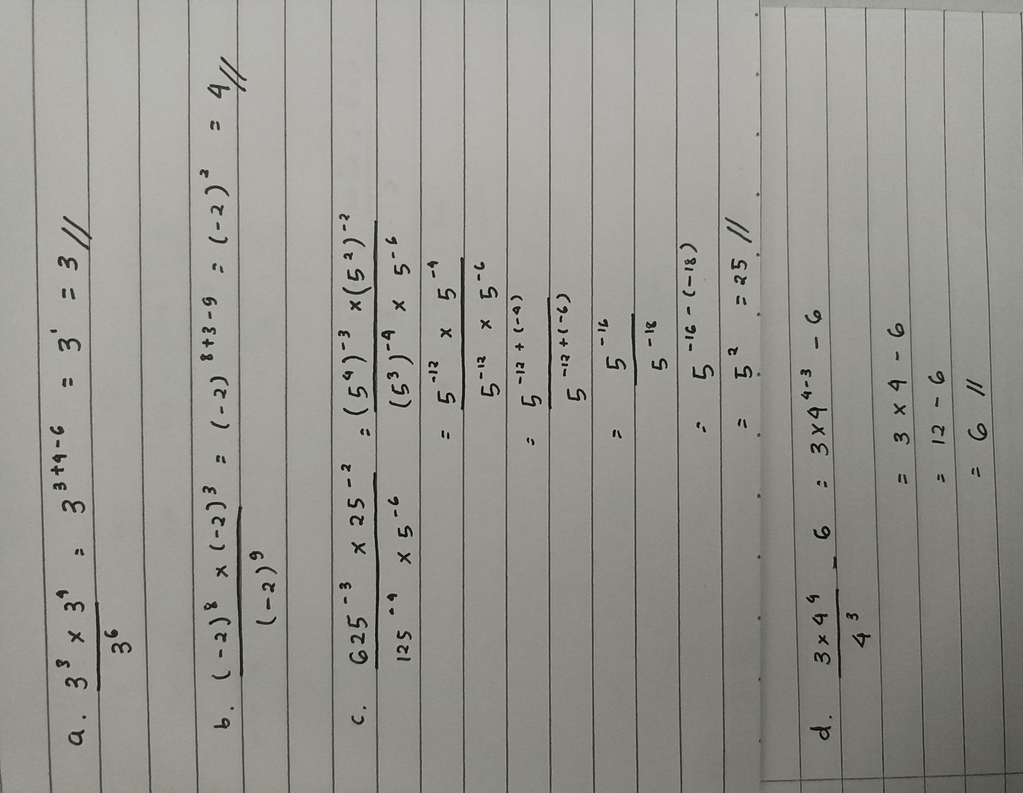 a. 3³ × 3⁴ / 3⁶ = 3³⁺⁴⁻⁶ = 3¹ = 3 //
b. (-2)⁸ × (-2)³ / (-2)⁹ = (-2)⁸⁺³⁻⁹ = (-2)² = 4 //
c. 625⁻³ × 25⁻² / 125⁻⁴ × 5⁻⁶ = (5⁴)⁻³ × (5²)⁻² / (5³)⁻⁴ × 5⁻⁶
= 5⁻¹² × 5⁻⁴ / 5⁻¹² × 5⁻⁶
= 5⁻¹²⁺⁽⁻⁴⁾ / 5⁻¹²⁺⁽⁻⁶⁾
= 5⁻¹⁶ / 5⁻¹⁸
= 5⁻¹⁶⁻⁽⁻¹⁸⁾
= 5² = 25 //
d. 3×4⁴ / 4³ - 6 = 3×4⁴⁻³ - 6
= 3 × 4 - 6
= 12 - 6
= 6 //